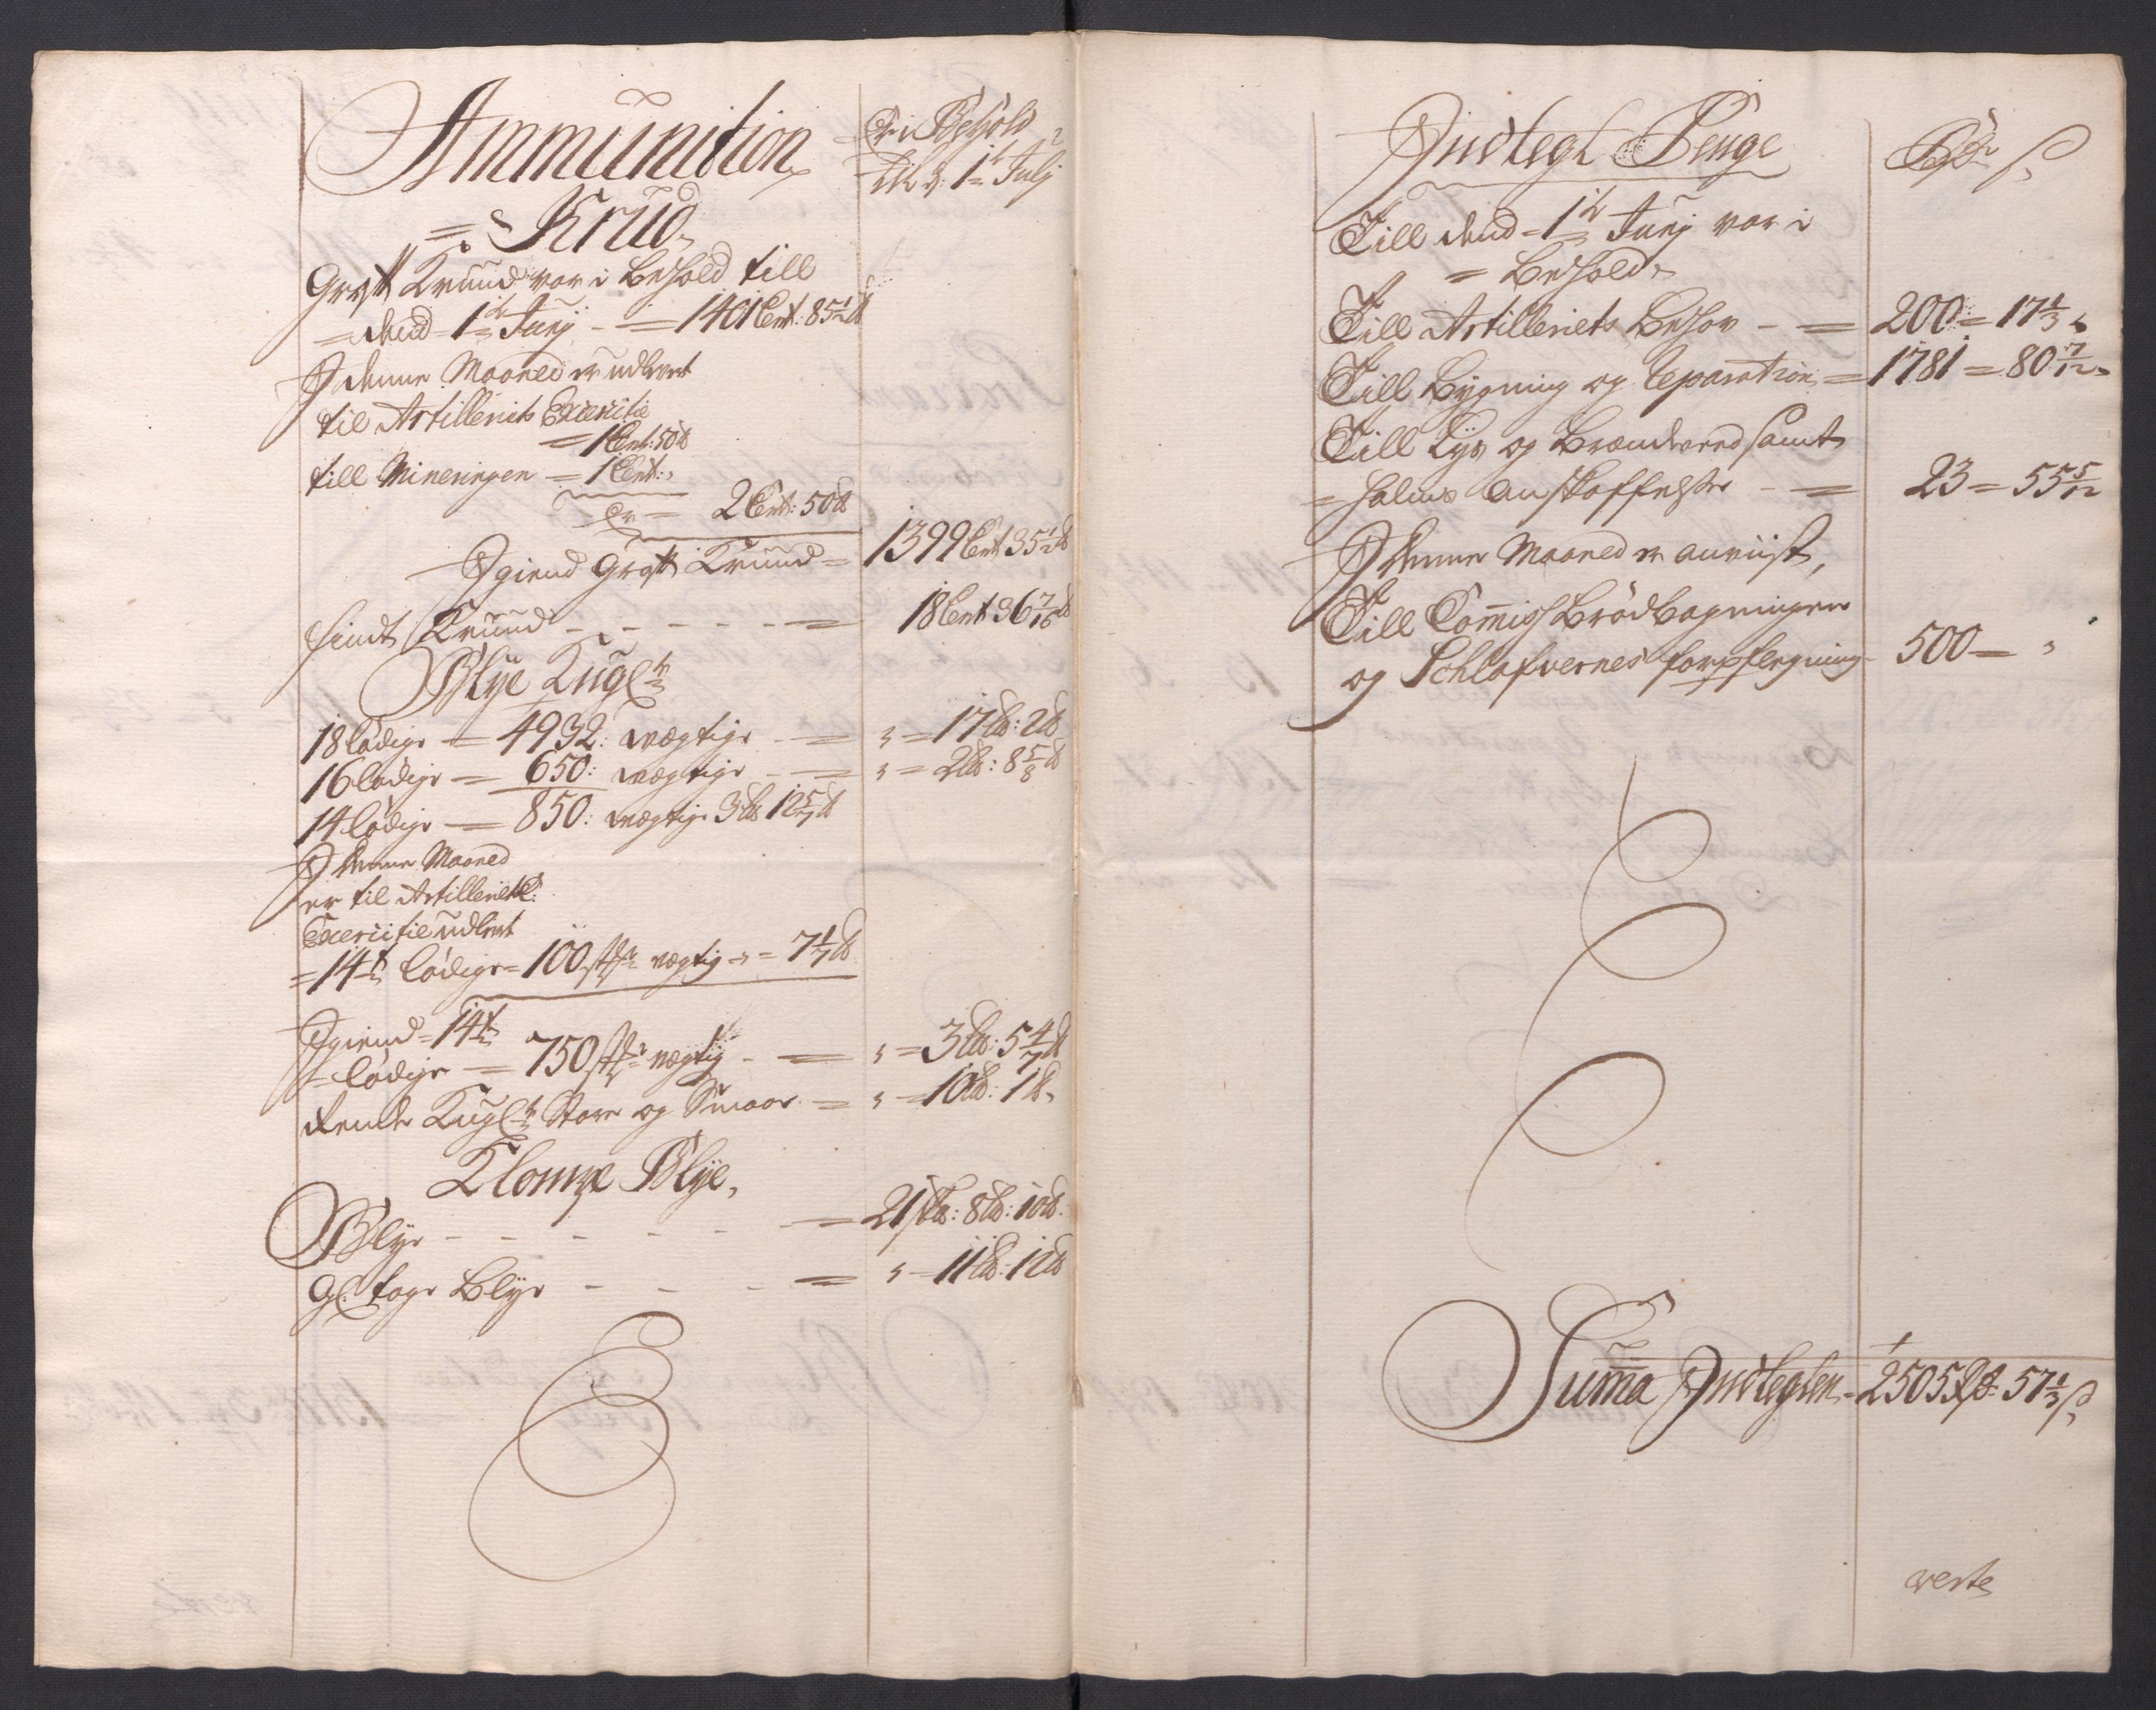 Ammunition
Er i Behold
til d: 1te Julj
Krud
Groft Kruud var i behold till
dend 1te Junj 1401 Cent: 85 1/2 ℔
I denne Maaned er udlevert
til Artilleriets Exercitie
1 Cent: 50 ℔
till Mineringen 1 Cent:
er 2 Cent: 50 ℔
Igiend Groft Kruud 1399 Cent 35 1/2 ℔
fiindt Kruud 18 Cent 36 7/16 ℔
Blye Kugler
18 lødige 4932: vægtige 17 L℔: 2 ℔
16 lødige 650: vægtige 2 L℔: 8 5/8 ℔
14 lødige 850: vægtige 3 L℔ 12 5/7 ℔
I denne Maaned
er til Artilleriets
Exercitie udlevert
14 lødige 100 st: vægtig 7 1/7 ℔
Igiend 14
lødige 750 st: vægtig 3 L℔: 5 4/7 ℔
Kugler Store og Smaae 10 L℔: 1 ℔
Klompe Blye,
Blye 21 sk℔: 8 L℔: 10 ℔:
Gl: tage Blye 11 L℔: 12 ℔
Indtegt Penge
Rdr ß
Till dend 1te Junj var i
Behold
Till Artilleriets behov 200 = 17 1/3
Till bygning og Reparation 1781 = 80 7/12
Till Lys og brændeveed samt
halms anskaffelse 23 = 55 5/12
I denne Maaned er anviist,
Till Commis brødbagningen
og Schlafvernes forpflegning 500
Summa Indtegten 2505 Rd: 57 1/3 ß
verte